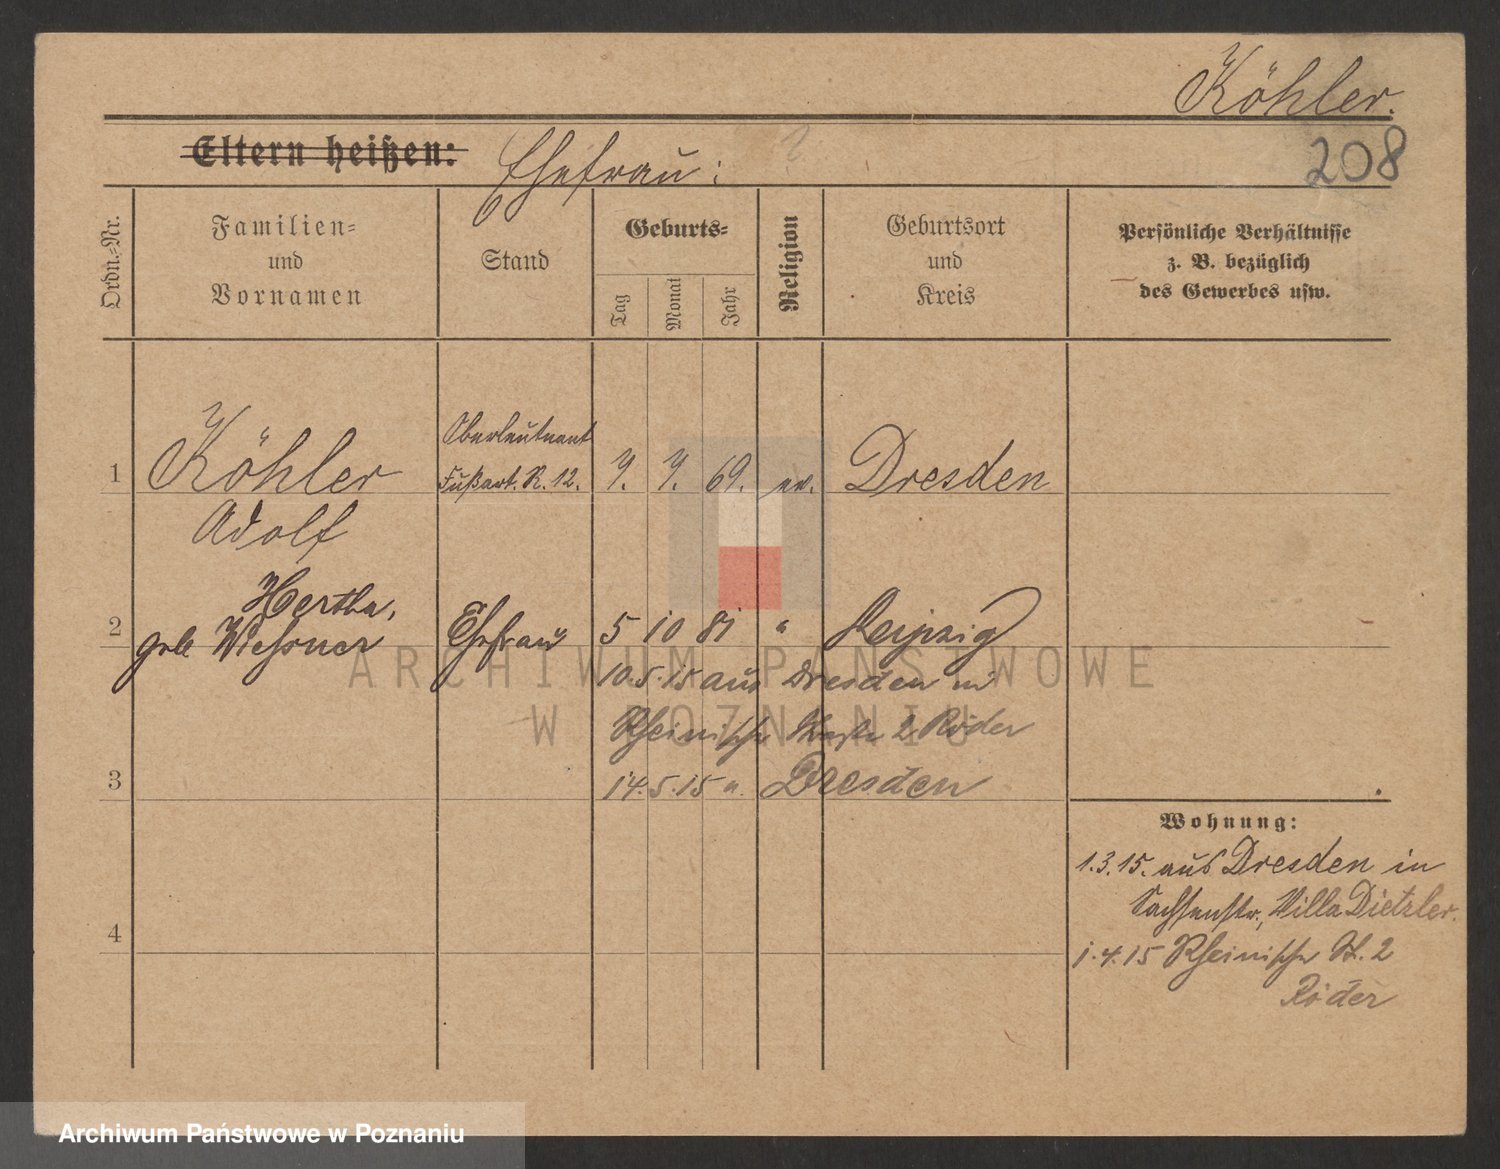 Köhler.
208
Eltern heißen:
Ehefrau:
Ordn.=Nr.
Familien=
und
Vornamen
Stand
Geburts=
Tag
Monat
Jahr
Religion
Geburtsort
und
Kreis
Persönliche Verhältnisse
z. B. bezüglich
des Gewerbes usw.
Oberleutnant
1 Köhler Fußart. R. 12. 9. 9. 69. ev. Dresden
Adolf
Hertha,
2 geb Wiessner Ehefrau 5 10 81 " Leipzig
10.5.15 aus Dresden in
Rheinische 2 Röder
3 14.5.15 n. Dresden
Wohnung:
1.3.15. aus Dresden in
Sachsenstr., Villa Dietzler.
4
1.4.15 Rheinische St. 2
Röder
ARCHIWUM PAŃSTWOWE
W POZNANIU
Archiwum Państwowe w Poznaniu